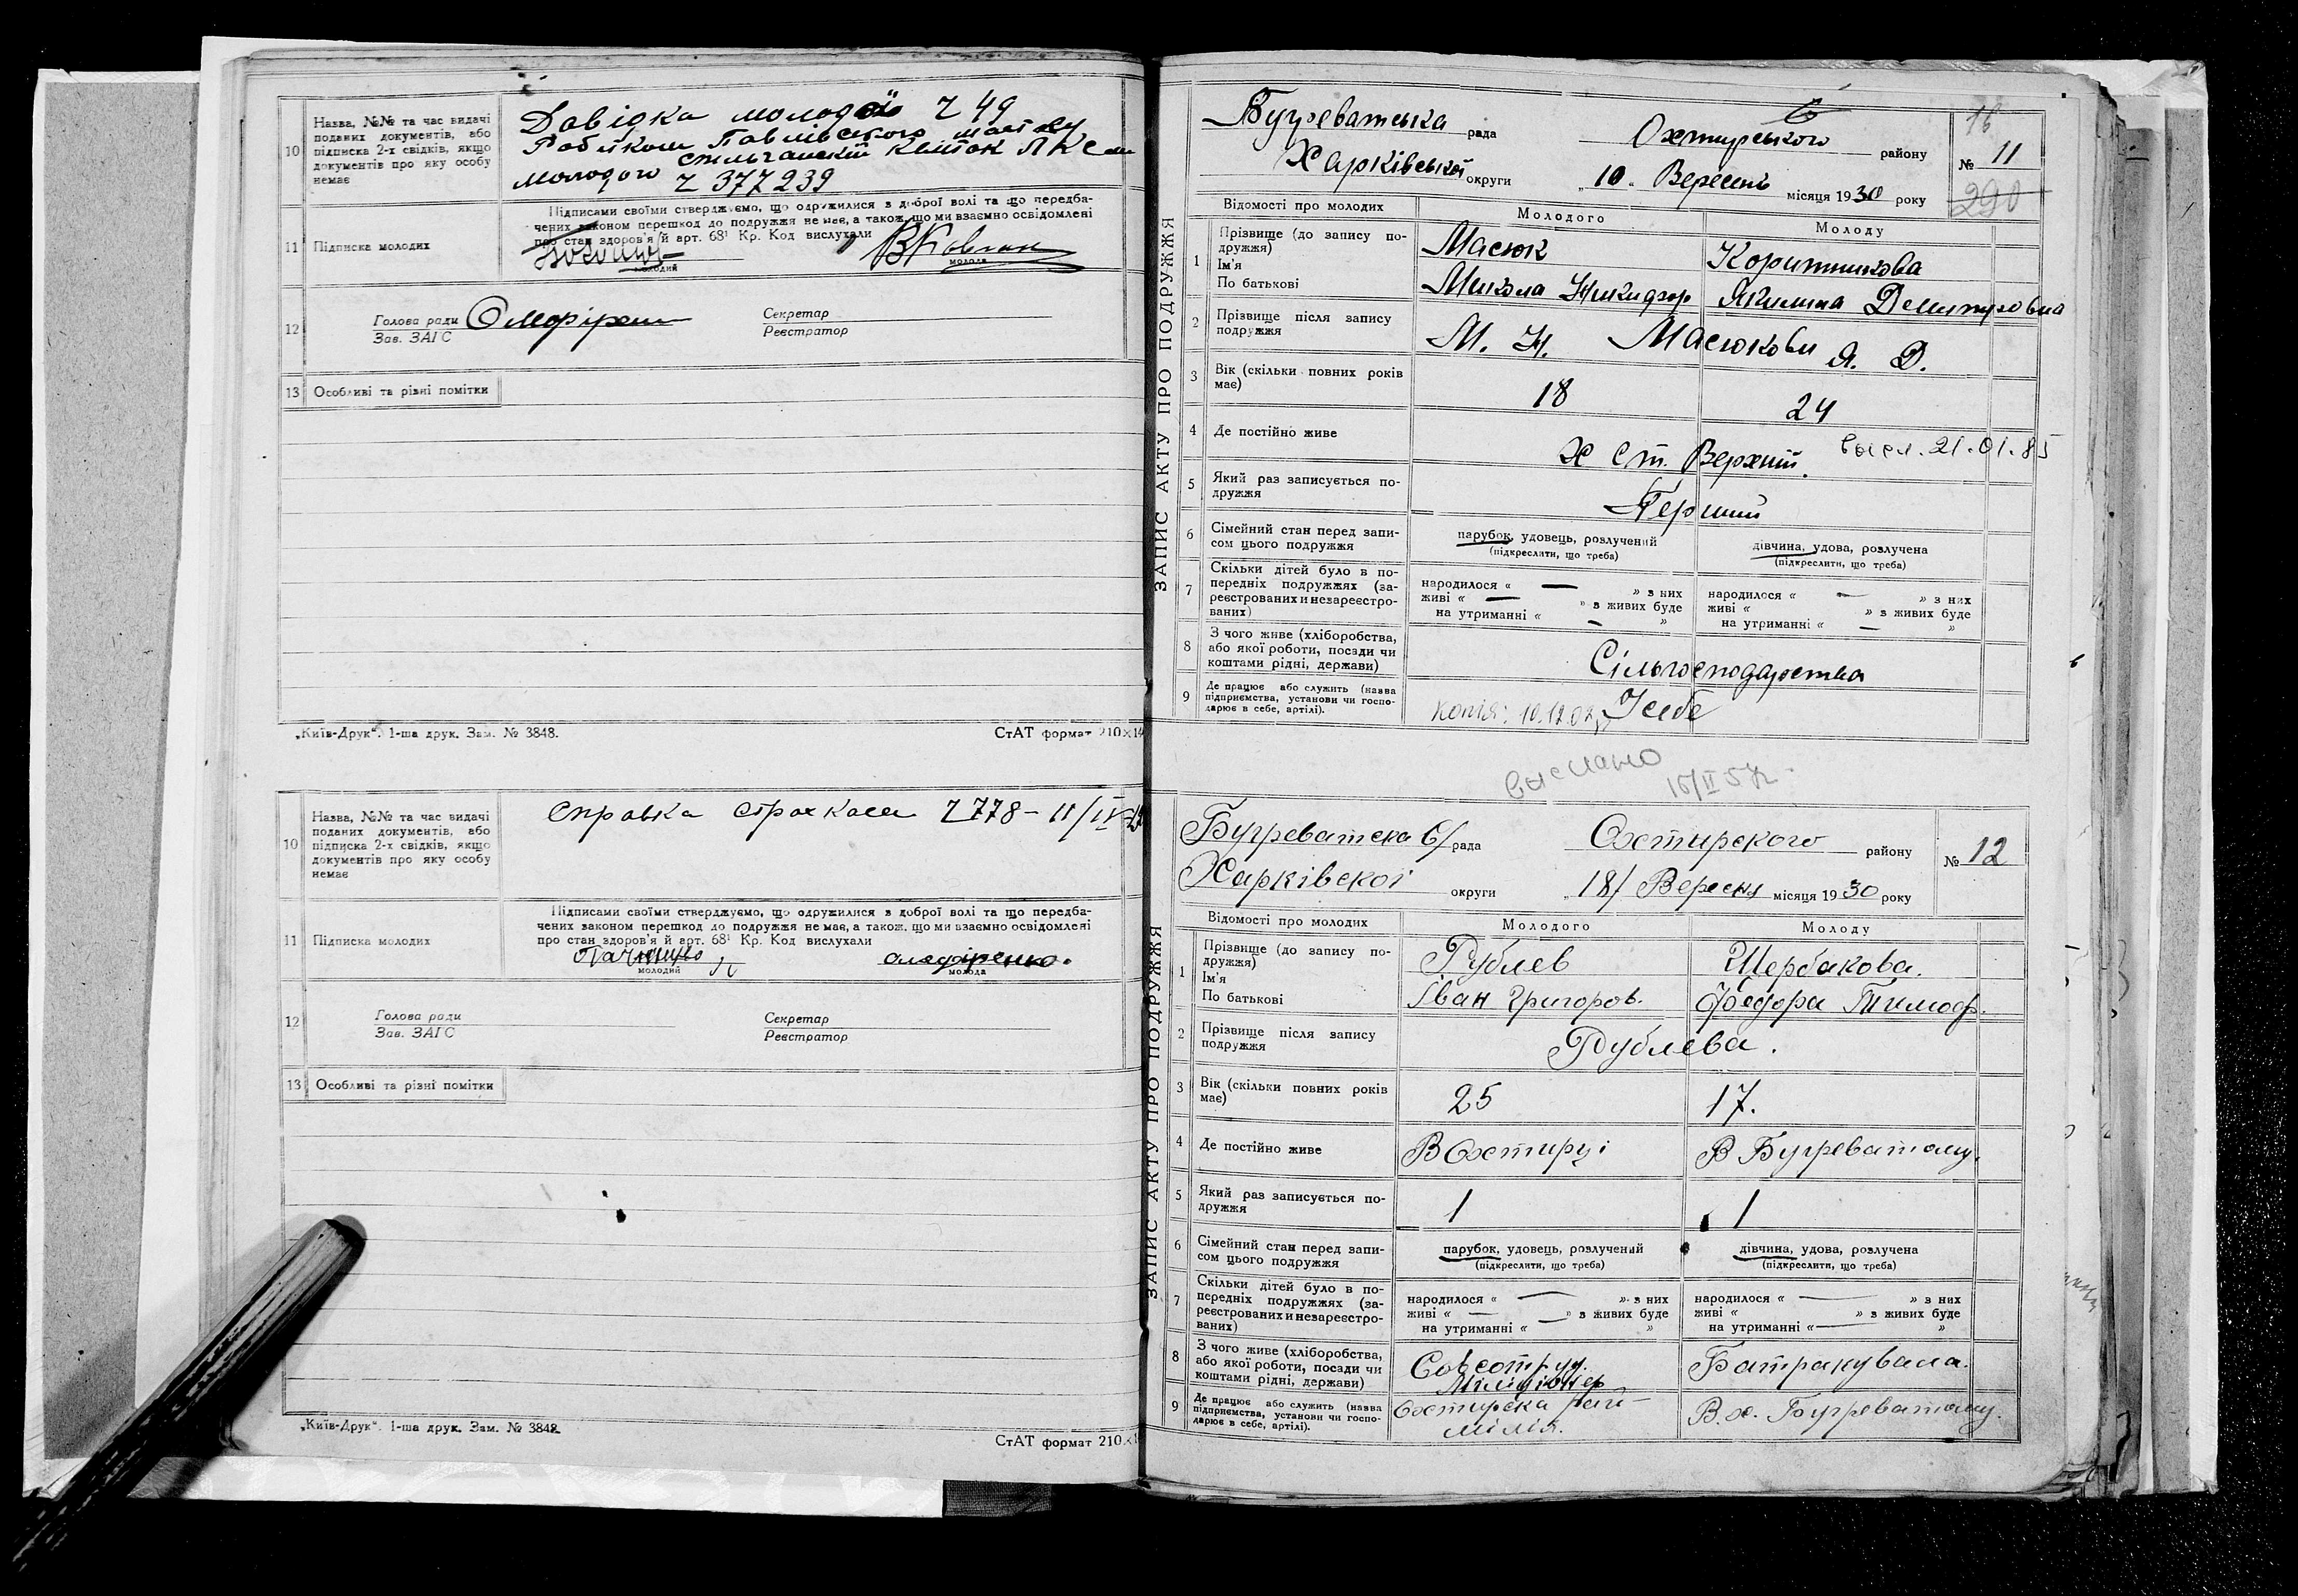 10
Назва, №№ та час видачі
поданих документів, або
підписка 2-х свідків, якщо
документів про яку особу
немає
Довідка молодої № 49
молодого № 377239
11
Підписка молодих
Підписами своїми стверджуємо, що одружилися з доброї волі та що передба-
чених законом перешкод до подружжя немає, а також, що ми взаємно освідомлені
про стан здоров'я й арт. 68¹ Кр. Код вислухали
молодий
молода
12
Голова ради
Зав. ЗАГС
Секретар
Реєстратор
13
Особливі та різні помітки
„Київ-Друк“. 1-ша друк. Зам. № 3848.
СтАТ формат 210×14
10
Назва, №№ та час видачі
поданих документів, або
підписка 2-х свідків, якщо
документів про яку особу
немає
Справка Страхкаси № 778 – 11/IX
11
Підписка молодих
Підписами своїми стверджуємо, що одружилися з доброї волі та що передба-
чених законом перешкод до подружжя немає, а також, що ми взаємно освідомлені
про стан здоров'я й арт. 68¹ Кр. Код вислухали
молодий
молода
12
Голова ради
Зав. ЗАГС
Секретар
Реєстратор
13
Особливі та різні помітки
„Київ-Друк“. 1-ша друк. Зам. № 3848.
СтАТ формат 210×
ЗАПИС АКТУ ПРО ПОДРУЖЖЯ
Бугреватська рада Охтирського району
16
№ 11
290
Харківської округи „10“ Вересень місяця 1930 року
Відомості про молодих
Молодого
Молоду
1
Прізвище (до запису по-
дружжя)
Ім'я
По батькові
Масюк
Микола Никифор
Коритникова
Якилина Демитровна
2
Прізвище після запису
подружжя
М. Н. Масюкови Я. Д.
3
Вік (скільки повних років
має)
18
24
4
Де постійно живе
Х Ст. Верхній.
высл. 21.01.85
5
Який раз записується по-
дружжя
Перший
6
Сімейний стан перед запи-
сом цього подружжя
парубок, удовець, розлучений
(підкреслити, що треба)
дівчина, удова, розлучена
(підкреслити, що треба)
7
Скільки дітей було в по-
передніх подружжях (за-
реєстрованих и незареєстро-
ваних)
народилося « — » з них
живі « — » з живих буде
на утриманні « — »
народилося « — » з них
живі « » з живих буде
на утриманні « — »
8
З чого живе (хліборобства,
або якої роботи, посади чи
коштами рідні, держави)
Сільгосподарства
9
Де працює або служить (назва
підприємства, установи чи госпо-
дарює в себе, артілі).
копія: 10.12.02
У себе
выслано
15/II 57г.
ЗАПИС АКТУ ПРО ПОДРУЖЖЯ
Бугреватска С/рада Охтирского району
№ 12
Харківскоі округи „18/ Вересня місяця 1930 року
Відомості про молодих
Молодого
Молоду
1
Прізвище (до запису по-
дружжя)
Ім'я
По батькові
Рублев
Іван Григоров.
Щербакова.
Федора Тимоф.
2
Прізвище після запису
подружжя
Рублева.
3
Вік (скільки повних років
має)
25
17.
4
Де постійно живе
В Охтирці
В Бугреватому.
5
Який раз записується по-
дружжя
1
1
6
Сімейний стан перед запи-
сом цього подружжя
парубок, удовець, розлучений
(підкреслити, що треба)
дівчина, удова, розлучена
(підкреслити, що треба)
7
Скільки дітей було в по-
передніх подружжях (за-
реєстрованих и незареєстро-
ваних)
народилося « — » з них
живі « — » з живих буде
на утриманні « — »
народилося « — » з них
живі « » з живих буде
на утриманні « — »
8
З чого живе (хліборобства,
або якої роботи, посади чи
коштами рідні, держави)
Совсотруд.
Міліціонер
Батракувала.
9
Де працює або служить (назва
підприємства, установи чи госпо-
дарює в себе, артілі).
Охтирска рай
мілія.
В. х. Бугреватому.